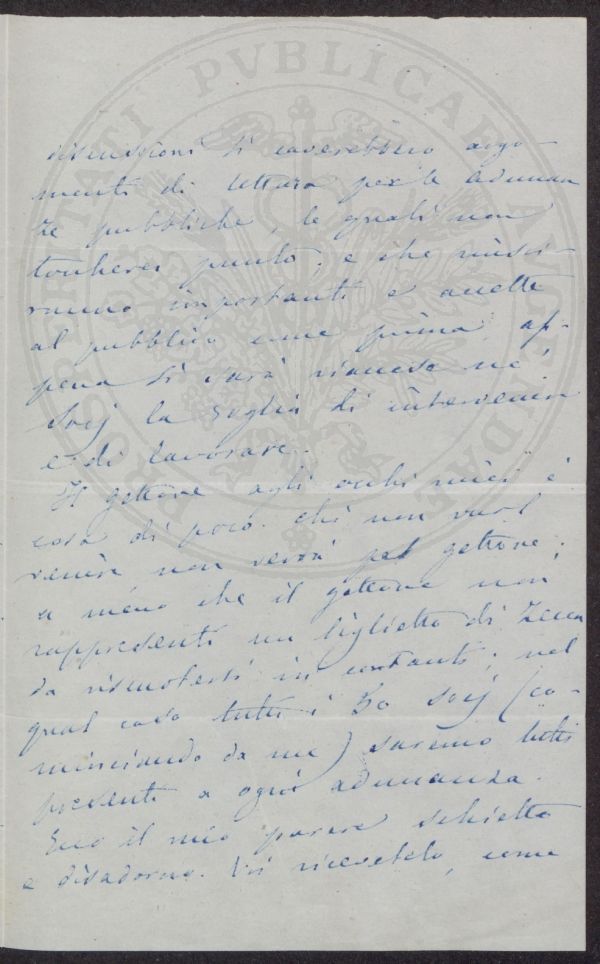 PROSPERITATI PVBLICAE AVGENDAE
discussioni si caverebbero argo-
menti di lettura per le adunan
ze pubbliche, le quali non
toccherei punto; e che riusci-
ranno importanti e accette
al pubblico come prima, ap-
pena si sarà rimessa ne'
Socj la voglia di intervenire
e di lavorare.
Il gettone agli occhi miei è
cosa di poco. chi non vuol
venire non verrà pel gettone;
a meno che il gettone non
rappresenti un biglietto di Zecca
da riscotersi in contanti; nel
qual caso tutti i 50 Socj (co-
minciando da me) saremo tutti
presenti a ogni adunanza.
Ecco il mio parere schietto
e disadorno. Voi ricevetelo, come